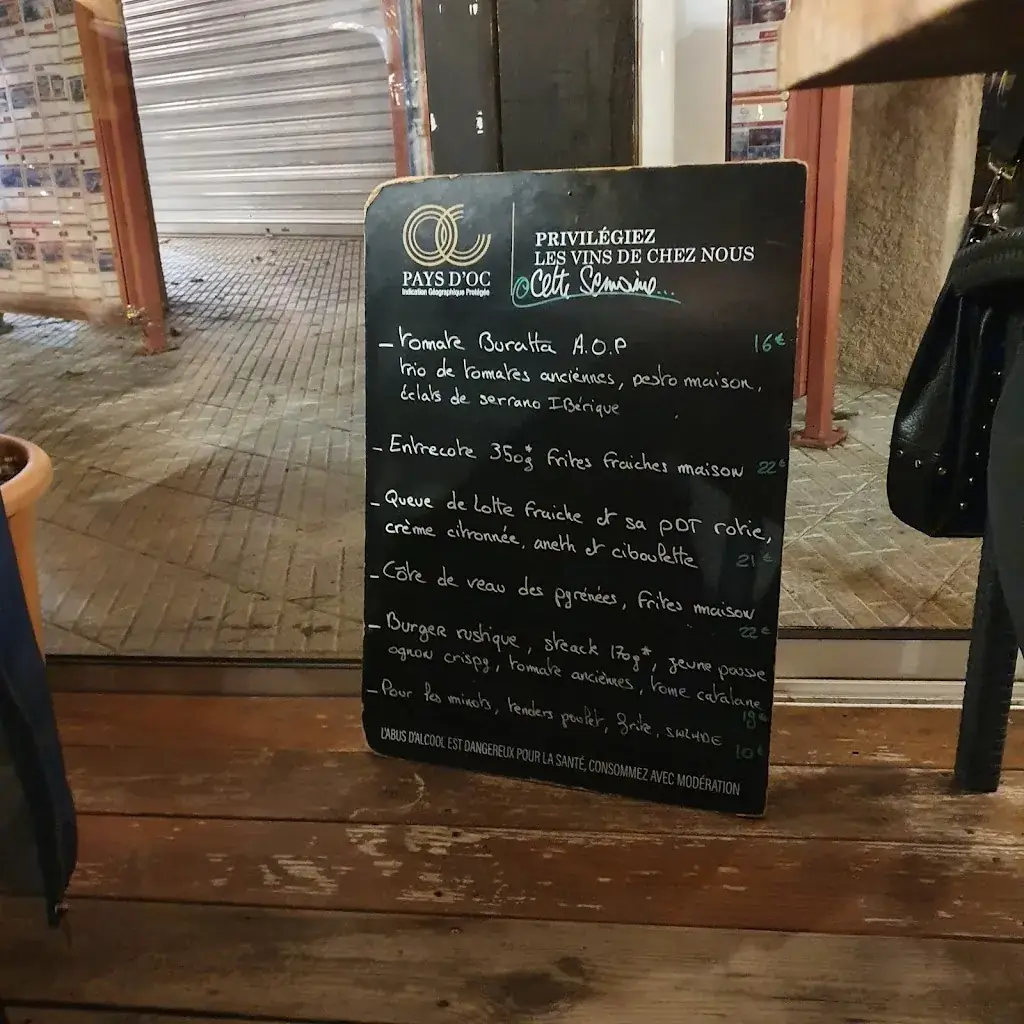 PAYS D'OC
Indication Géographique Protégée
PRIVILÉGIEZ
LES VINS DE CHEZ NOUS
Cette Semaine...
- tomate Buratta A.O.P 16€
trio de tomates anciénnes, pesto maison,
éclats de serrano IBérique
- Entrecote 350g* frites fraiches maison 22€
- Queue de Lotte fraiche et sa PDT rotie,
crème citronnée, aneth et ciboulette 21€
- Côte de veau des pyrénées, frites maison
22€
- Burger rustique, steack 170g*, jeune pousse
ognon crispy, tomate anciennes, tome catalane
- Pour les minots, tenders poulet, frite, SALADE
10€
L'ABUS D'ALCOOL EST DANGEREUX POUR LA SANTÉ, CONSOMMEZ AVEC MODÉRATION